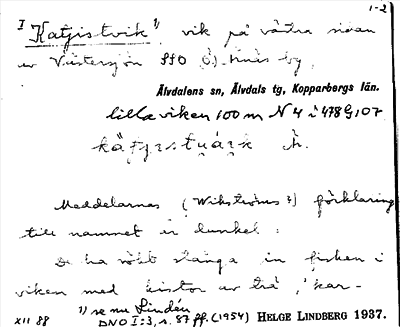 1-2
I Katjistvik 1) vik på västra sidan
av Västersjön SSO Ö) näs by,
Älvdalens sn, Älvdals tg, Kopparbergs län.
lilla viken 100 m N 4 i 478 G, 07
Meddelarnes (Wikströms?) förklaring
till namnet är dunkel:
De ha stänga in fisken i
viken med av trä, 'kar-
1) se nu Lindén
XII 88 DNO I:3, s. 87 ff. (1954) HELGE LINDBERG 1937.